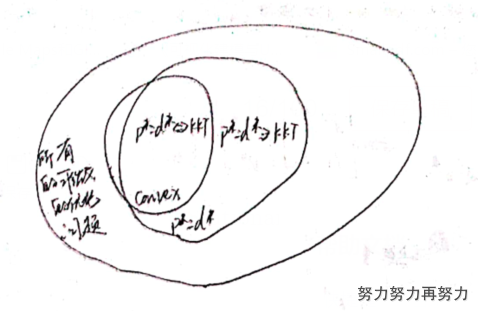 p*=d*⇔KKT
p*=d*⇒KKT
所有
的可微
的优化
问题
convex
p*=d*
努力努力再努力